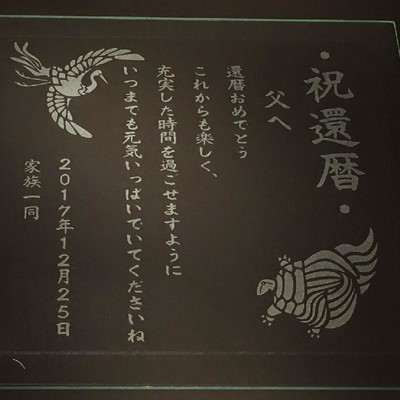 ・祝還暦・
父へ
還暦おめでとう
これからも楽しく、
充実した時間を過ごせますように
いつまでも元気いっぱいでいてくださいね
2017年12月25日
家族一同